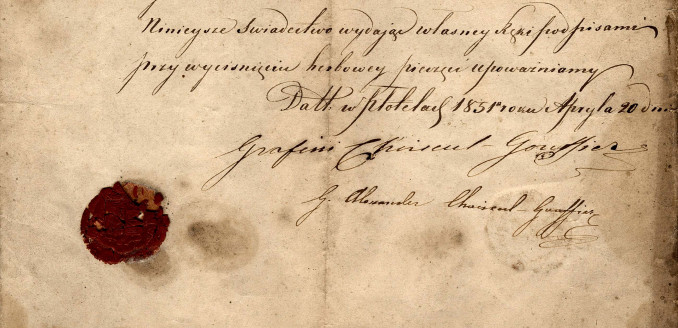 Ninieysze Świadectwo wydaiąc własney Ręki podpisami
przy wyciśnięciu herbowey pieczęci upoważniamy
Datt. w Płotelach 1851° roku Apryla 20 dnia
Grafini Choiseul-Gouffier
G. Alexander Choiseul-Gouffier